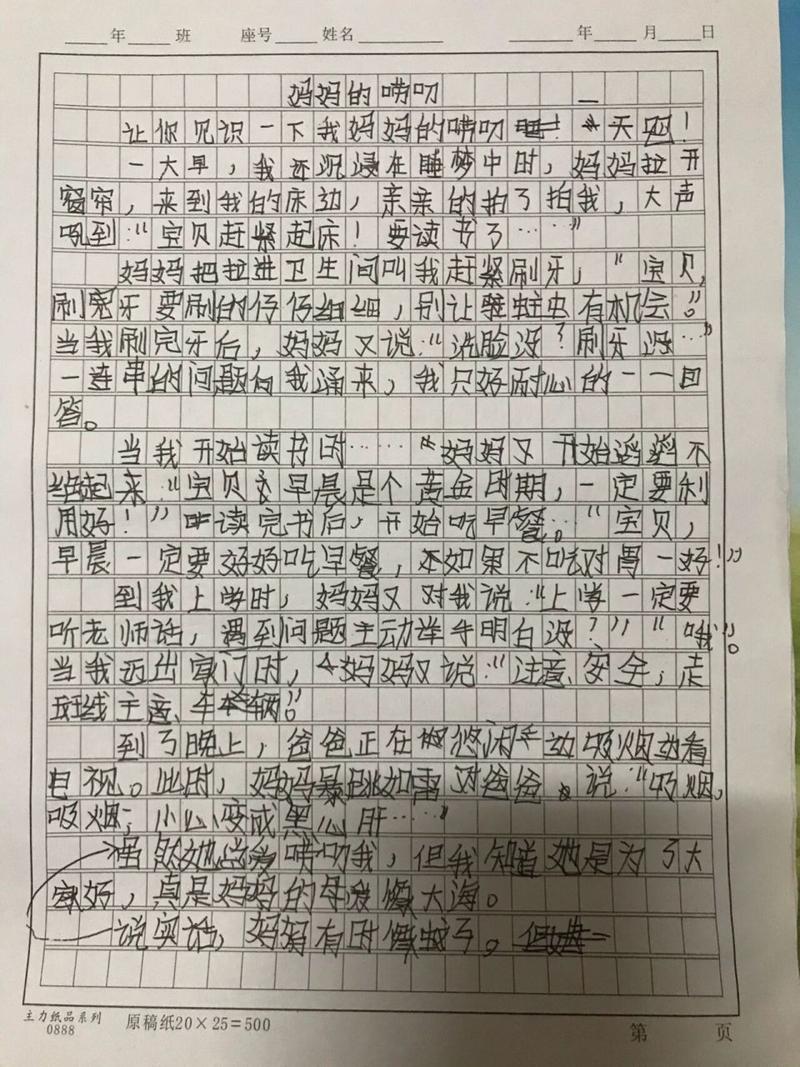 年 班 座号 姓名 年 月 日
妈妈的唠叨
让你见识一下我妈妈的唠叨 天 !
一大早，我还沉浸在睡梦中时，妈妈拉开
窗帘，来到我的床边，亲亲的拍了拍我，大声
吼到：“宝贝赶紧起床！要读书了……”
妈妈把拉进卫生间叫我赶紧刷牙，“宝贝，
刷完牙要刷的仔仔细细，别让蛀虫有机会。”
当我刷完牙后，妈妈又说：“洗脸没？刷牙没…”
一连串的问题向我涌来，我只好耐心的一一回
答。
当我开始读书时……“妈妈又开始滔滔不
起来“宝贝 早晨是个黄金时期，一定要利
用好！”读完书后，开始吃早餐。“宝贝，
早晨一定要好好吃早餐，如果不吃对胃一好！”
到我上学时，妈妈又对我说：“上学一定要
听老师话，遇到问题主动举手明白没？”“哦”。
当我迈出家门时，妈妈又说：“注意、安全，走
斑线主意、车辆”。
到了晚上，爸爸正在悠闲 动吸烟动看
电视。此时，妈妈暴跳如雷对爸爸 说：“吸烟，
吸烟；小心变成黑心肝……”
虽然她总爱唠叨我，但我知道她是为了大
家好，真是妈妈的母爱像大海。
说实话，妈妈有时像蚊子。
主力纸品系列
0888
原稿纸20×25=500
第 页